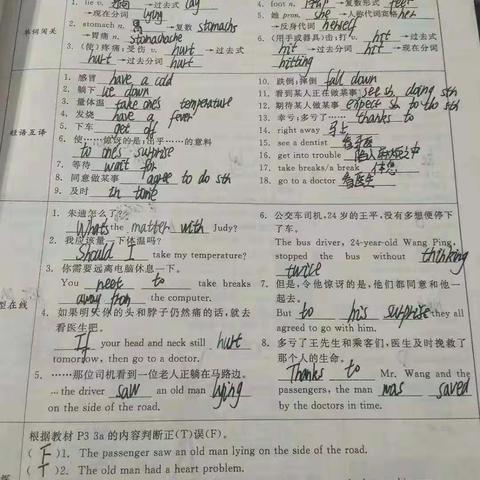 1. lie v. → 过去式
→现在分词 lying
2. stomach n. 胃 →复数 stomachs
→胃痛 n. stomachache
3. (使)疼痛;受伤 v. hurt →过去式
hurt →过去分词 hurt
→复数形式 feet
5. 她 pron. she →人称代词宾格 her
→反身代词 herself
6. (用手或器具)击;打 v. hit →过去式
hit →过去分词 hit →现在分词
hitting
单词闯关
短语互译
1. 感冒 have a cold
2. 躺下 lie down
3. 量体温 take ones temperature
4. 发烧 have a fever
5. 下车 get off
6. 使……惊讶的是;出乎……的意料
to one's surprise
7. 等待 wait for
8. 同意做某事 agree to do sth
9. 及时 in time
10. 跌倒;摔倒 fall down
11. 看到某人正在做某事 see sb. doing sth
12. 期待某人做某事 expect sb to do sth
13. 幸亏;多亏了…… thanks to
14. right away 马上
15. see a dentist 看牙医
16. get into trouble
17. take breaks/a break 休息
18. go to a doctor 看医生
型在线
1. 朱迪怎么了?
Whats the matter with Judy?
2. 我应该量一下体温吗?
Should I take my temperature?
3. 你需要远离电脑休息一下。
You neet to take breaks
away from the computer.
4. 如果明天你的头和脖子仍然痛的话,就去
看医生吧。
If your head and neck still hurt
tomorrow, then go to a doctor.
5. ……那位司机看到一位老人正躺在马路边。
…the driver saw an old man lying
on the side of the road.
6. 公交车司机,24岁的王平,没有多想便停下
了车。
The bus driver, 24-year-old Wang Ping,
stopped the bus without thinking
twice
7. 但是,令他惊讶的是,他们都同意和他一
起去。
But to his surprise they all
agreed to go with him.
8. 多亏了王先生和乘客们,医生及时挽救了
那个人的生命。
Thanks to Mr. Wang and the
passengers, the man was saved
by the doctors in time.
根据教材 P3 3a 的内容判断正(T)误(F)。
( F )1. The passenger saw an old man lying on the side of the road.
( F )2. The old man had a heart problem.